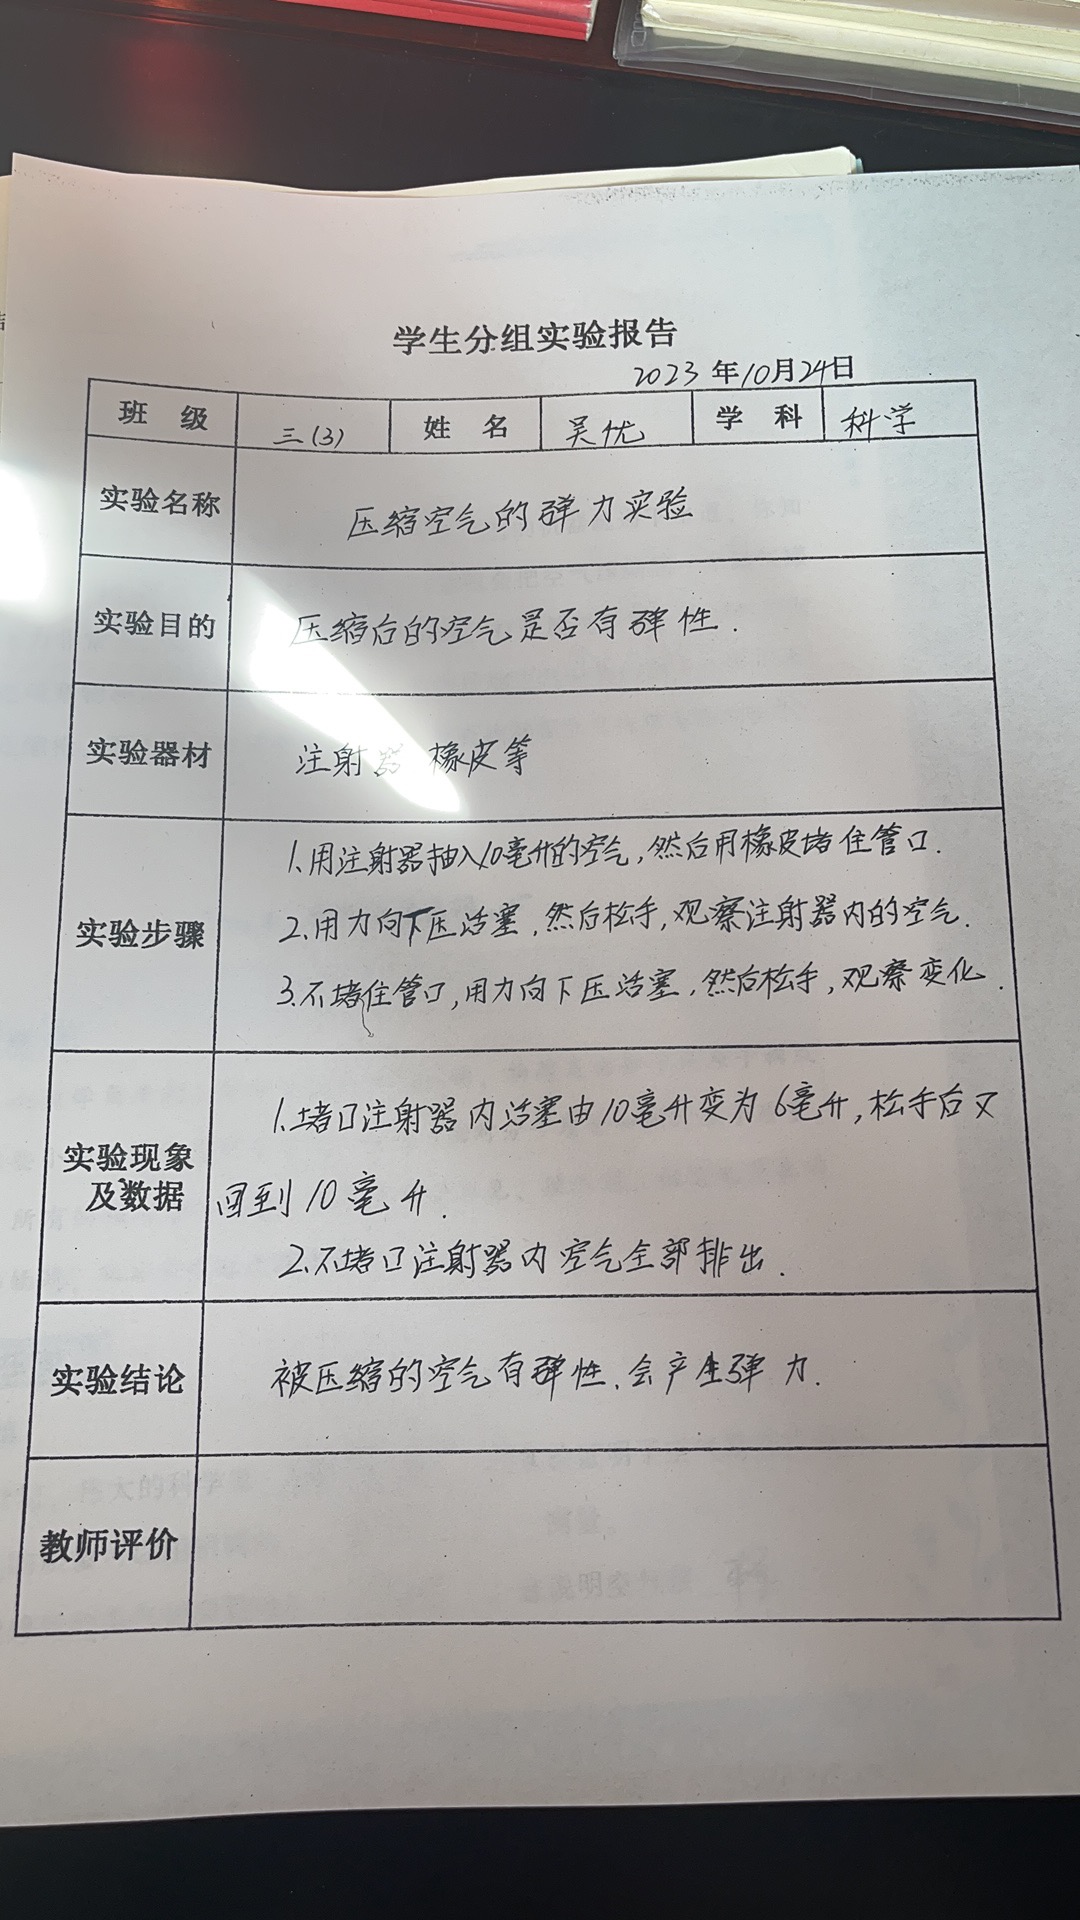 学生分组实验报告
2023年10月24日
班 级 三(3) 姓 名 吴忧 学 科 科学
实验名称 压缩空气的弹力实验
实验目的 压缩后的空气是否有弹性.
实验器材 注射器 橡皮等
实验步骤
1.用注射器抽入10毫升的空气,然后用橡皮堵住管口.
2.用力向下压活塞,然后松手,观察注射器内的空气.
3.不堵住管口,用力向下压活塞,然后松手,观察变化.
实验现象
及数据
1.堵口注射器内活塞由10毫升变为6毫升,松手后又
回到10毫升.
2.不堵口注射器内空气全部排出.
实验结论 被压缩的空气有弹性、会产生弹力.
教师评价